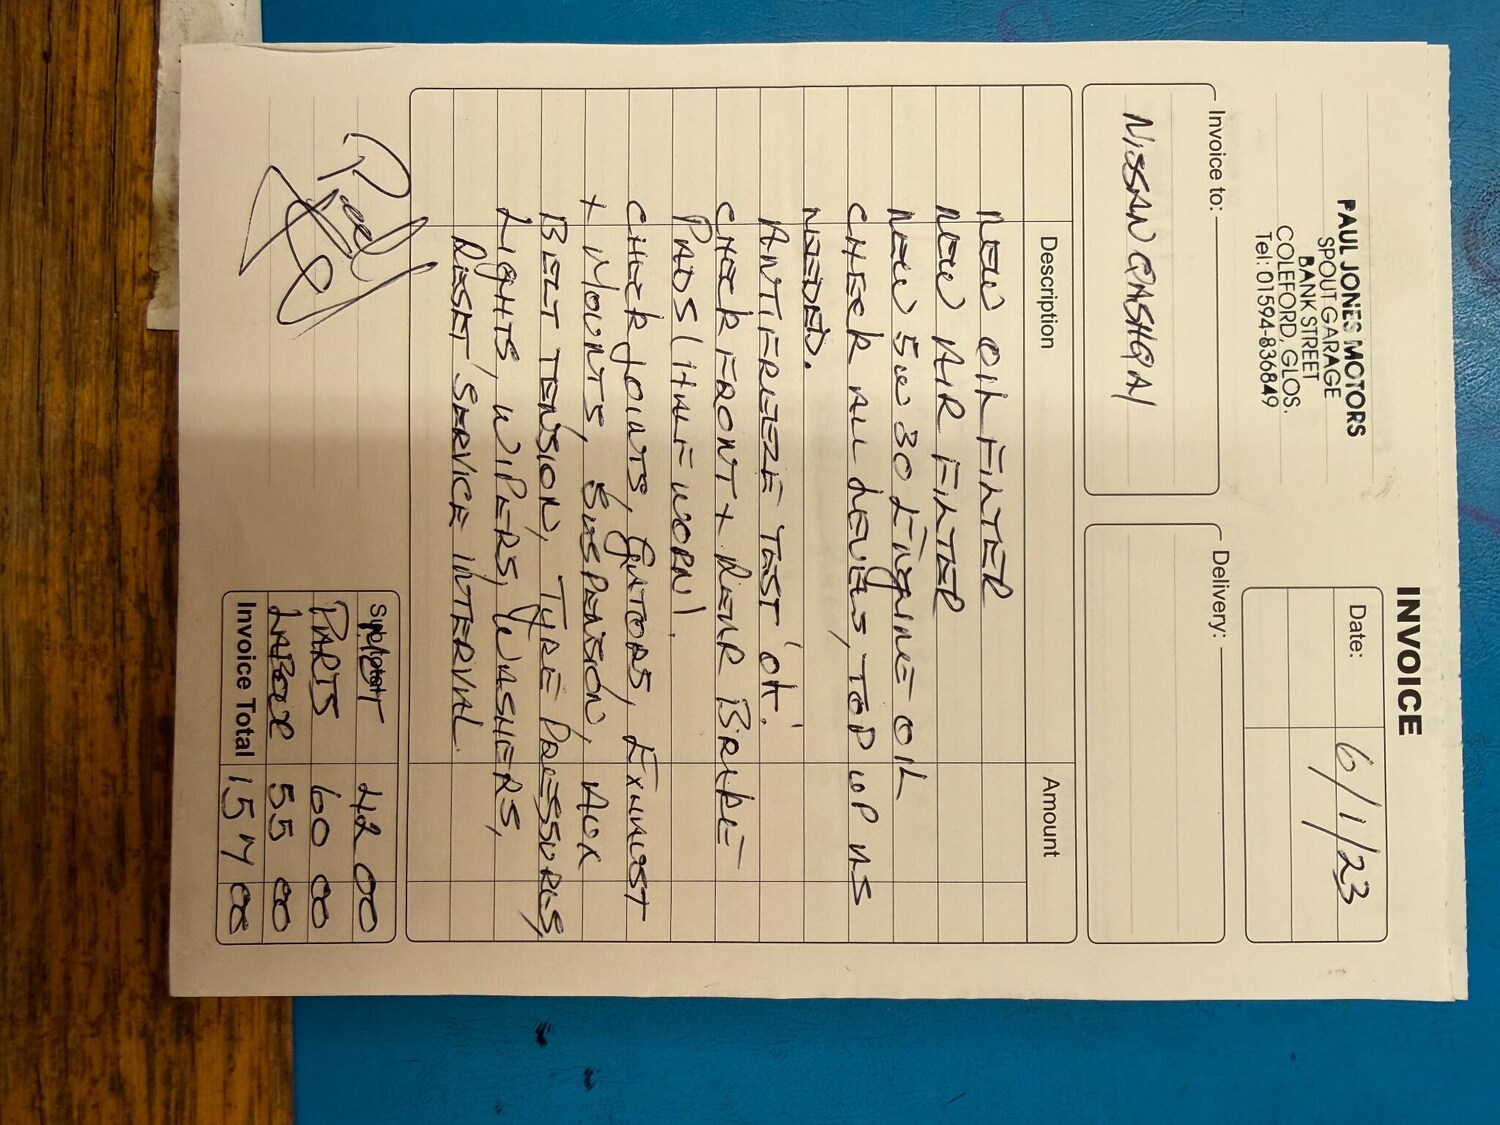 INVOICE
PAUL JONES MOTORS
SPOUT GARAGE
BANK STREET
COLEFORD, GLOS.
Tel: 01594-836849
Date: 6/1/23
Invoice to:
NISSAN QASHQAI
Delivery:
Description Amount
NEW OIL FILTER
NEW AIR FILTER
NEW 5W30 ENGINE OIL
CHECK ALL LEVELS, TOP UP AS
NEEDED.
ANTIFREEZE TEST 'OK'.
CHECK FRONT + REAR BRAKE
PADS (HALF WORN).
CHECK JOINTS, GATORS, EXHAUST
+ MOUNTS, SUSPENSION, AUX
BELT TENSION, TYRE PRESSURES,
LIGHTS, WIPERS, WASHERS,
RESET SERVICE INTERVAL
42 00
PARTS 60 00
LABOUR 55 00
Invoice Total 157 00
Paid